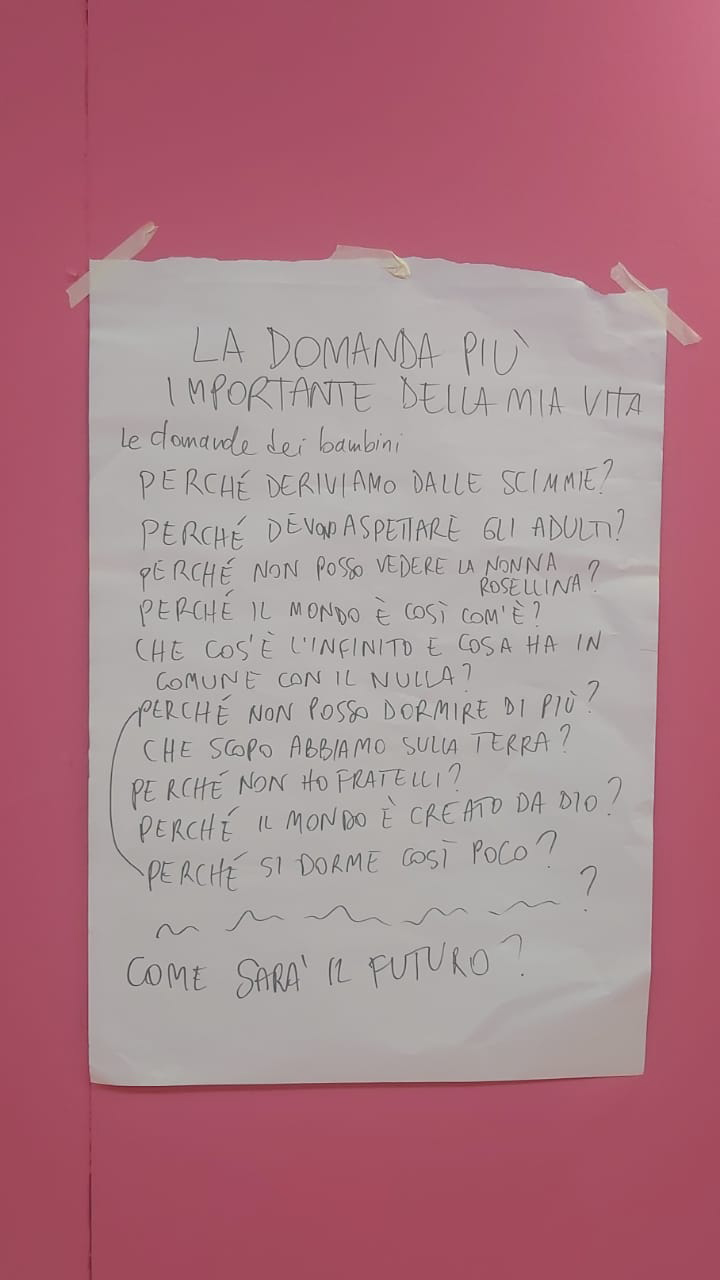 LA DOMANDA PIÙ
IMPORTANTE DELLA MIA VITA
Le domande dei bambini
PERCHÉ DERIVIAMO DALLE SCIMMIE?
PERCHÉ DEVONO ASPETTARE GLI ADULTI?
PERCHÉ NON POSSO VEDERE LA NONNA
ROSELLINA?
PERCHÉ IL MONDO È COSÌ COM'È?
CHE COS'È L'INFINITO E COSA HA IN
COMUNE CON IL NULLA?
PERCHÉ NON POSSO DORMIRE DI PIÙ?
CHE SCOPO ABBIAMO SULLA TERRA?
PERCHÉ NON HO FRATELLI?
PERCHÉ IL MONDO È CREATO DA DIO?
PERCHÉ SI DORME COSÌ POCO?
?
COME SARA' IL FUTURO?